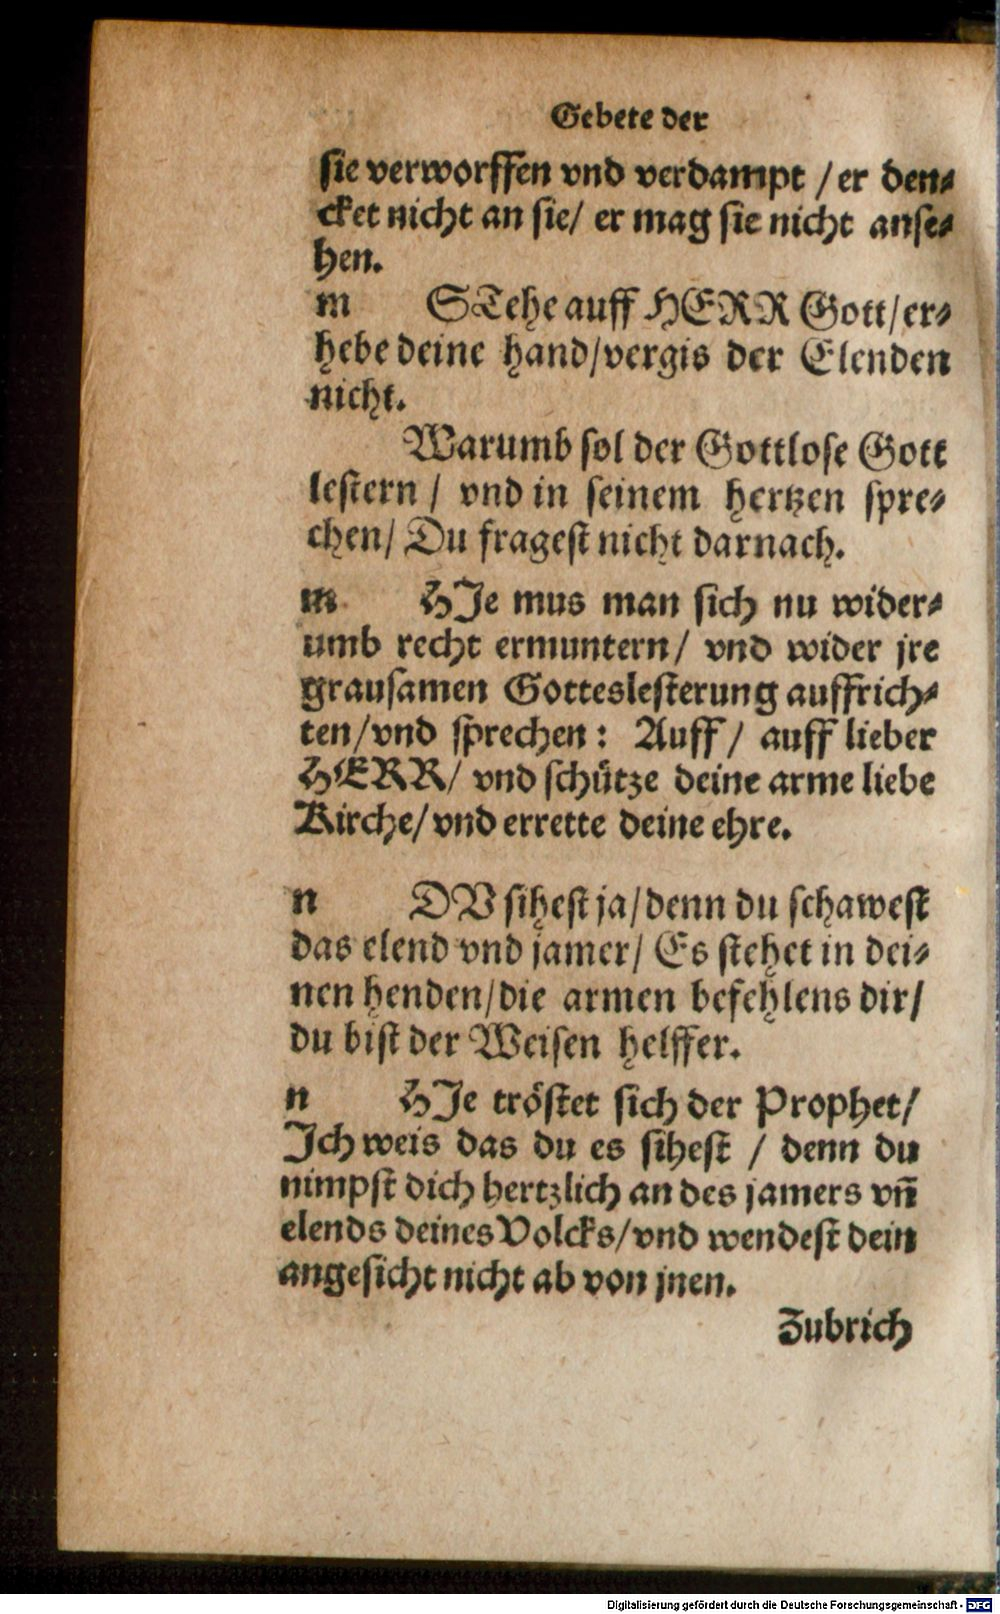 Gebete der
sie verworffen vnd verdampt / er den⸗
cket nicht an sie/ er mag sie nicht anse⸗
hen.
m STehe auff HERR Gott/er⸗
hebe deine hand/vergis der Elenden
nicht.
Warumb sol der Gottlose Gott
lestern / vnd in seinem hertzen spre⸗
chen/ Du fragest nicht darnach.
m HJe mus man sich nu wider⸗
umb recht ermuntern/ vnd wider jre
grausamen Gotteslesterung auffrich⸗
ten/vnd sprechen: Auff/ auff lieber
HERR/ vnd schütze deine arme liebe
Kirche/vnd errette deine ehre.
n DV sihest ja/denn du schawest
das elend vnd jamer/ Es stehet in dei⸗
nen henden/die armen befehlens dir/
du bist der Weisen helffer.
n HJe tröstet sich der Prophet/
Jch weis das du es sihest / denn du
nimpst dich hertzlich an des jamers vn̄
elends deines Volcks/vnd wendest dein
angesicht nicht ab von jnen.
Zubrich
Digitalisierung gefördert durch die Deutsche Forschungsgemeinschaft - DFG